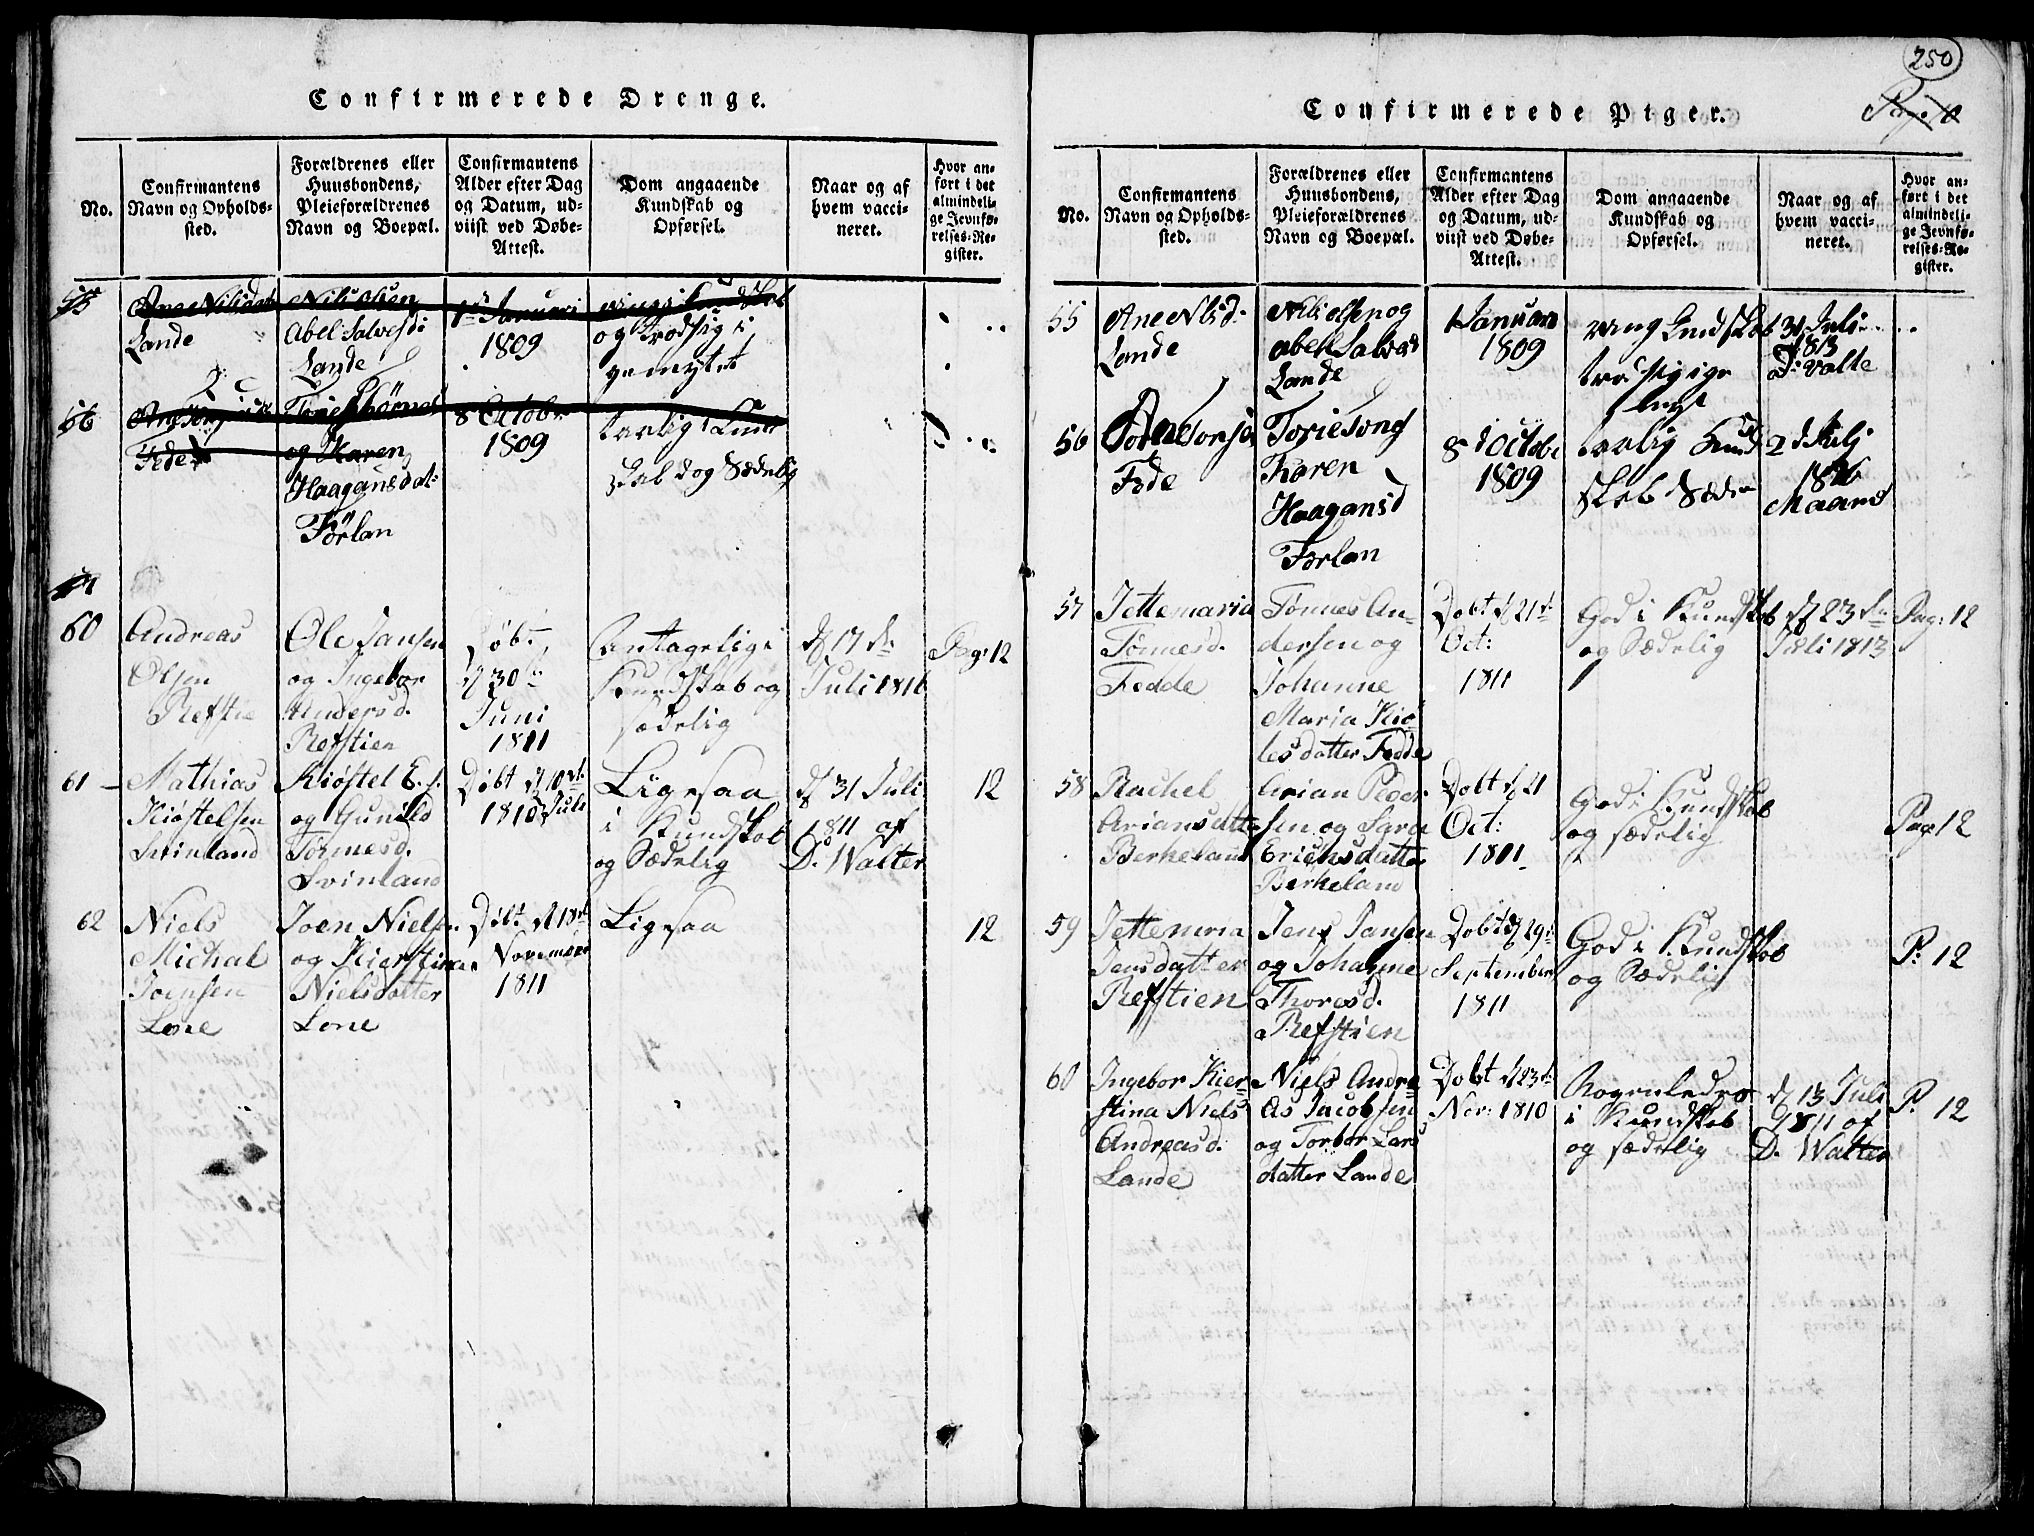 250
Confirmerede Drenge.
No.
Confirmantens
Navn og Opholds-
sted.
Forældrenes eller
Huusbondens,
Pleieforældrenes
Navn og Boepæl.
Confirmantens
Alder efter Dag
og Datum, ud-
viist ved Døbe-
Attest.
Dom angaaende
Kundskab og
Opførsel.
Naar og af
hvem vacci-
neret.
Hvor an-
ført i det
almindeli-
ge Jevnfø-
relses-Re-
gister.
55
Ane Nilsdat
Lande
Nils Olsen
Abel Salvesd
Lande
1 Januari
1809
ringe Kundskab
og Trodsig i
gemytet
56
Fede
og Karen
Haagansdat:
Førlan
8 October
1809
tarlig Kund
skab dog Sædelig
60
Andreas
Olsen
Refstie
Ole Jansen
og Ingebor
Andersd.
Refstien
Døbt
d 30te
Juni
1811
Antagelig i
Kundskab og
sædelig
d 17 de
Juli 1816
Pag: 12
61
Mathias
Kiøstelsen
Svinland
Kiøstel E. s.
og Gunild
Tønnesd.
Svinland
Døbt d 10de
1810 Juli
Ligesaa
i Kundskab
og Sædelig
d 31 Juli
1811 af
D. Walter
12
62
Niels
Michal
Joensen
Lone
Joen Nielsen
og Kierstine
Nielsdatter
Lone
Døbt d 18de
November
1811
Ligesaa
12
Confirmerede Piger.
No.
Confirmantens
Navn og Opholds-
sted.
Forældrenes eller
Huusbondens,
Pleieforældrenes
Navn og Boepæl.
Confirmantens
Alder efter Dag
og Datum, ud-
viist ved Døbe-
Attest.
Dom angaaende
Kundskab og
Opførsel.
Naar og af
hvem vacci-
neret.
Hvor an-
ført i det
almindeli-
ge Jevnfø-
relses-Re-
gister.
55
Ane Nlsd:
Lande
Nils olsen og
abel Salvesd
Lande
1 Januari
1809
ring Kundskab
31 Juli
1813
D: Valte
56
Ane Torjesd
Fede
Torie Tons
Karen
Haagansd
Førlan
8 d October
1809
tarlig Kund
skab Sæde
2 d Julj
1816
Maans
57
Jettemaria
Tønnesd.
Fedde
Tønnes An-
dersen og
Johanne
Maria Kiø
lesdatter Fedde
Dobt d 21de
Oct:
1811
God i Kundskab
og Sædelig
d 23 de
Juli 1813
Pag: 12
58
Rachel
Ariansdatte
Berkeland
Arian Peder-
sen og Sara
Erichsdatter
Berkeland
Dobt d 21
Oct:
1811
God i Kundskab
og sædelig
Pag 12
59
Jettemria
Jensdatter
Refstien
Jens Jansen
og Johanne
Thoresd.
Refstien
Dobt d 29de
September
1811
God i Kundskab
og Sædelig
P: 12
60
Ingebor Kier-
stina Niels
Andreasd.
Lande
Niels Andre
as Jacobsen
og Torbor Lars
datter Lande
Dobt d 23de
Nov: 1810
Nogenledes
i Kundskab
og sædelig
d 13 Juli
1811 af
D. Walter
P. 12